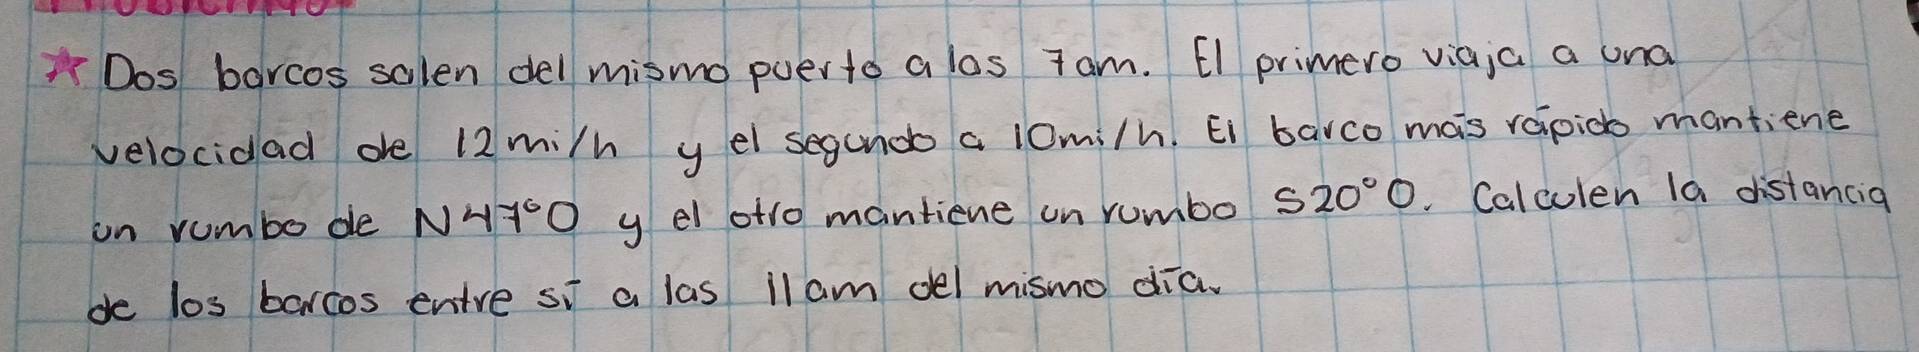 Dos barcos salen del mismo puerto a las 7am. El primero viaja a una
velocidad de 12mi/h y el segundo a 10mi/h. El barco más rápido mantiene
un rumbo de N47°O y el otro mantiene un rumbo S20°O. Calculen la distancia
de los barcos entre sí a las 11am del mismo día.